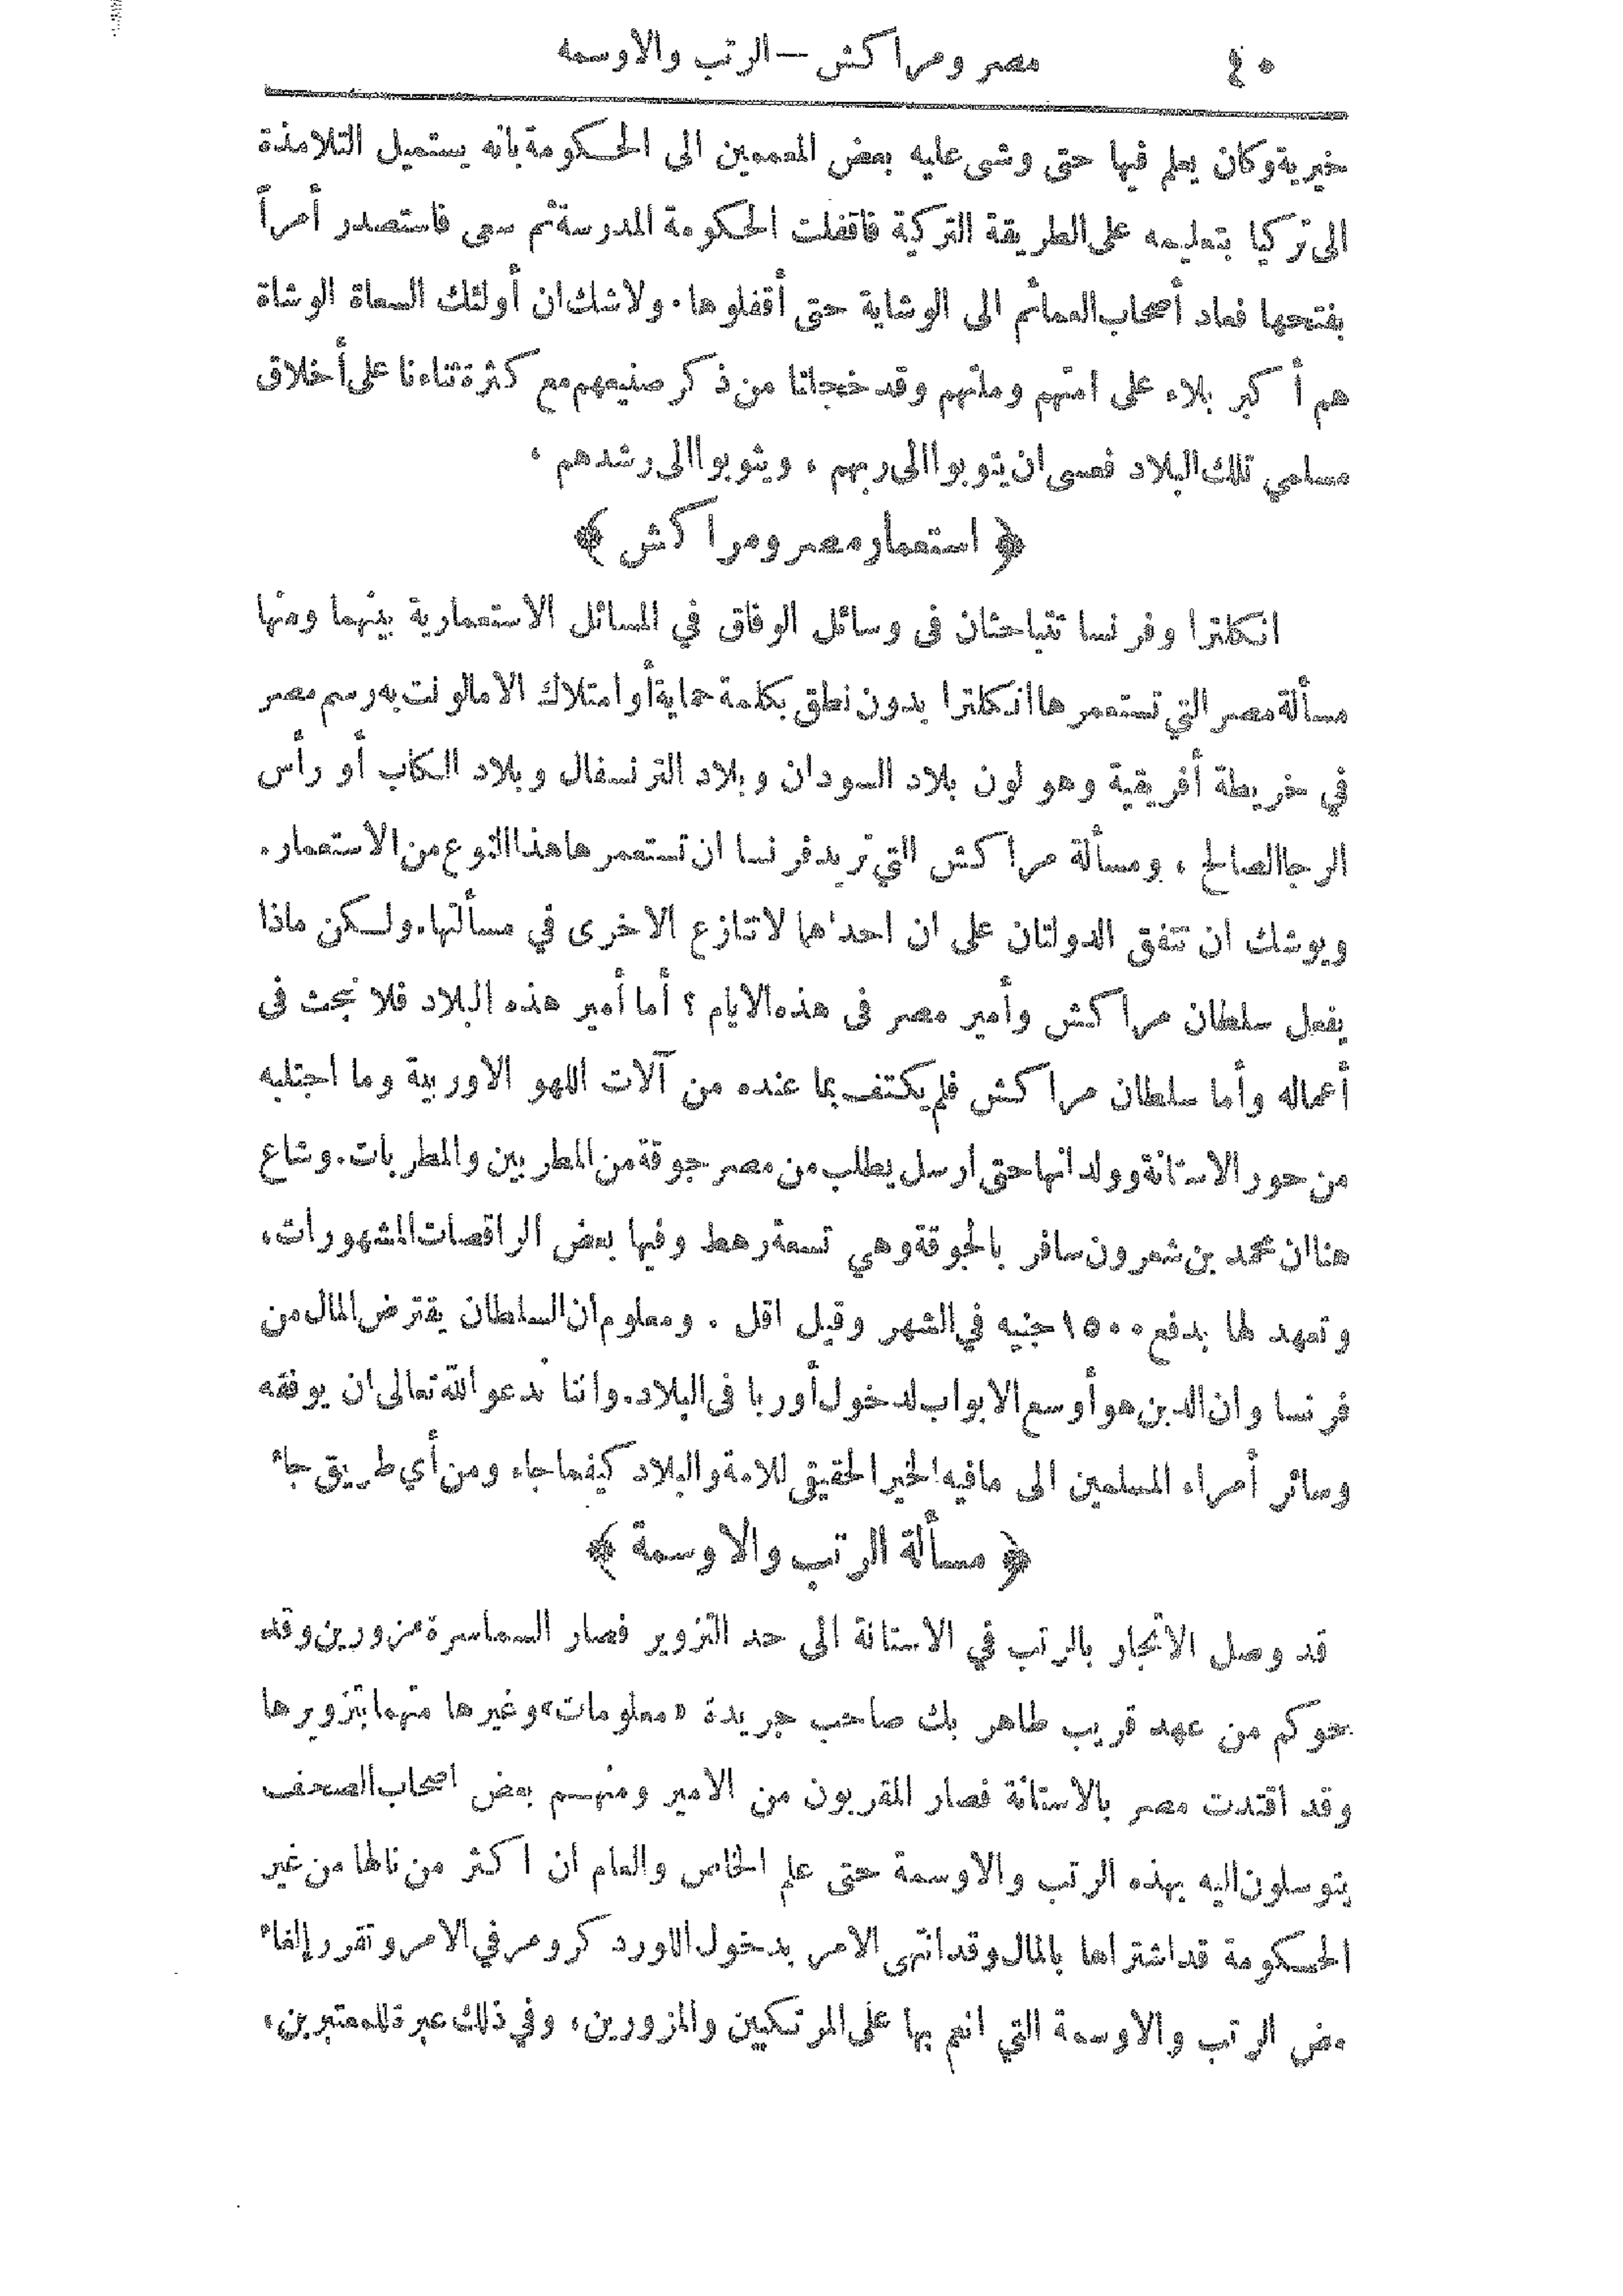 ٤٠ مصر ومراكش — الرتب والاوسمه
خيرية وكان يعلم فيها حتى وشى عليه بعض المعممين الى الحكومة بانه يستميل التلامذة
الى تركيا بتعليمه على الطريقة التركية فاقفلت الحكومة المدرسة ثم سعى فاستصدر أمراً
بفتحها فعاد أصحاب العمائم الى الوشاية حتى أقفلوها . ولا شك ان أولئك السعاة الوشاة
هم أكبر بلاء على امتهم وملتهم وقد خجلنا من ذكر صنيعهم مع كثرة ثناءنا على أخلاق
مسلمي تلك البلاد فعسى ان يتوبوا الى ربهم ، ويثوبوا الى رشدهم .
﴿ استعمار مصر ومراكش ﴾
انكلترا وفرنسا تتباحثان في وسائل الوفاق في المسائل الاستعمارية بينهما ومنها
مسألة مصر التي تستعمرها انكلترا بدون نطق بكلمة حماية أو امتلاك الا ما لونت به رسم مصر
في خريطة أفريقية وهو لون بلاد السودان وبلاد الترنسفال وبلاد الكاب أو رأس
الرجا الصالح ، ومسألة مراكش التي تريد فرنسا ان تستعمرها هذا النوع من الاستعمار .
ويوشك ان تتفق الدولتان على ان احداهما لا تنازع الاخرى في مسألتها . ولكن ماذا
يفعل سلطان مراكش وأمير مصر في هذه الايام ؟ أما أمير هذه البلاد فلا نبحث في
أعماله وأما سلطان مراكش فلم يكتف بما عنده من آلات اللهو الاوربية وما اجتلبه
من حور الاستانة وولدانها حتى أرسل يطلب من مصر جوقة من المطربين والمطربات . وشاع
هنا ان محمد بن شعرون سافر بالجوقة وهي تسعة رهط وفيها بعض الراقصات المشهورات ،
وتعهد لها بدفع ١٥٠٠ جنيه في الشهر وقيل اقل . ومعلوم أن السلطان يقترض المال من
فرنسا وان الدين هو أوسع الابواب لدخول أوربا في البلاد . واننا ندعو الله تعالى ان يوفقه
وسائر أمراء المسلمين الى ما فيه الخير الحقيقي للامة والبلاد كيفما جاء ومن أي طريق جاء
﴿ مسألة الرتب والاوسمة ﴾
قد وصل الاتجار بالرتب في الاستانة الى حد التزوير فصار السماسرة مزورين وقد
حوكم من عهد قريب طاهر بك صاحب جريدة «معلومات» وغيرها متهما بتزويرها
وقد اقتدت مصر بالاستانة فصار المقربون من الامير ومنهم بعض اصحاب الصحف
يتوسلون اليه بهذه الرتب والاوسمة حتى علم الخاص والعام ان اكثر من نالها من غير
الحكومة قد اشتراها بالمال وقد انتهى الامر بدخول اللورد كرومر في الامر وتقرر إلغاء
بعض الرتب والاوسمة التي انعم بها على المرتكبين والمزورين ، وفي ذلك عبرة للمعتبرين ،